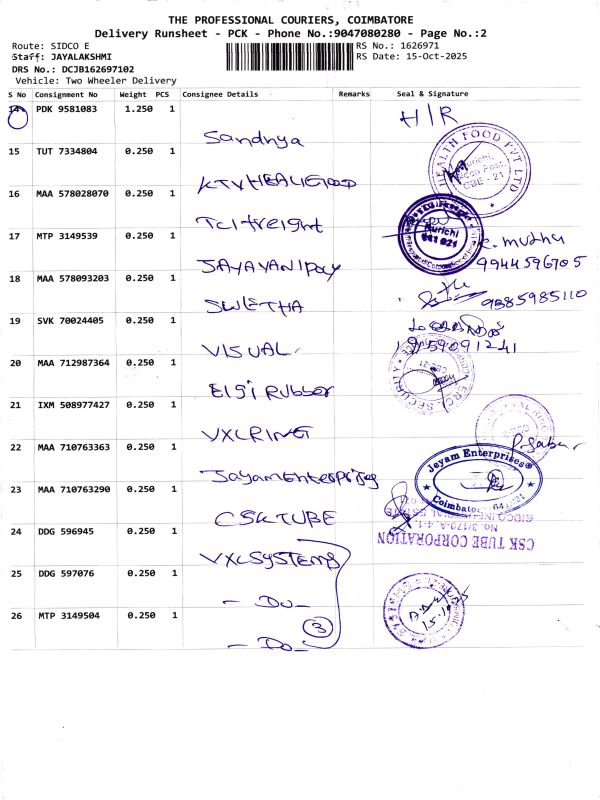 THE PROFESSIONAL COURIERS, COIMBATORE
Delivery Runsheet - PCK - Phone No.:9047080280 - Page No.:2
Route: SIDCO E
RS No.: 1626971
Staff: JAYALAKSHMI
RS Date: 15-Oct-2025
DRS No.: DCJB162697102
Vehicle: Two Wheeler Delivery
S No Consignment No Weight PCS Consignee Details Remarks Seal & Signature
14 PDK 9581083 1.250 1 Sandhya H/R
15 TUT 7334804 0.250 1 KTV HEALTH FOOD
HEALTH FOOD PVT LTD
CBE - 21
16 MAA 578028070 0.250 1 Tci freight
Kurichi
641 021
17 MTP 3149539 0.250 1 JAYAVANI Poly K. muthu
9944596705
18 MAA 578093203 0.250 1 SWETHA 9385985110
19 SVK 70024405 0.250 1 VISUAL
20 MAA 712987364 0.250 1 Elgi Rubber
SECURITY
21 IXM 508977427 0.250 1 VXLRING
22 MAA 710763363 0.250 1 Jayam Enterprises
Jayam Enterprises
Coimbatore 641 021
23 MAA 710763290 0.250 1 CSK TUBE
CSK TUBE CORPORATION
24 DDG 596945 0.250 1 VXL SYSTEMS
25 DDG 597076 0.250 1 - Do -
26 MTP 3149504 0.250 1 - Do -
3